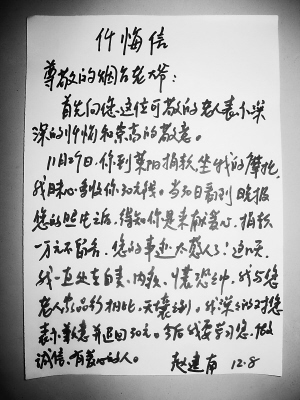 忏悔信
尊敬的烟台老大爷：
首先向您这位可敬的老人表示深
深的忏悔和崇高的敬意。
11月29日，你到莱阳捐款，坐我的摩托，
我昧心多收你30元钱。当30日看到晚报
您的照片之后，得知你是来献爱心，捐款
一万元不留名，您的事迹太感人了！这几天，
我一直处在自责、内疚、惶恐中，我与您
老人家品行相比，天壤之别。我深深的对您
表示歉意并退回30元。今后我要学习您，做
诚信、有爱心的人。
赵建有 12.8